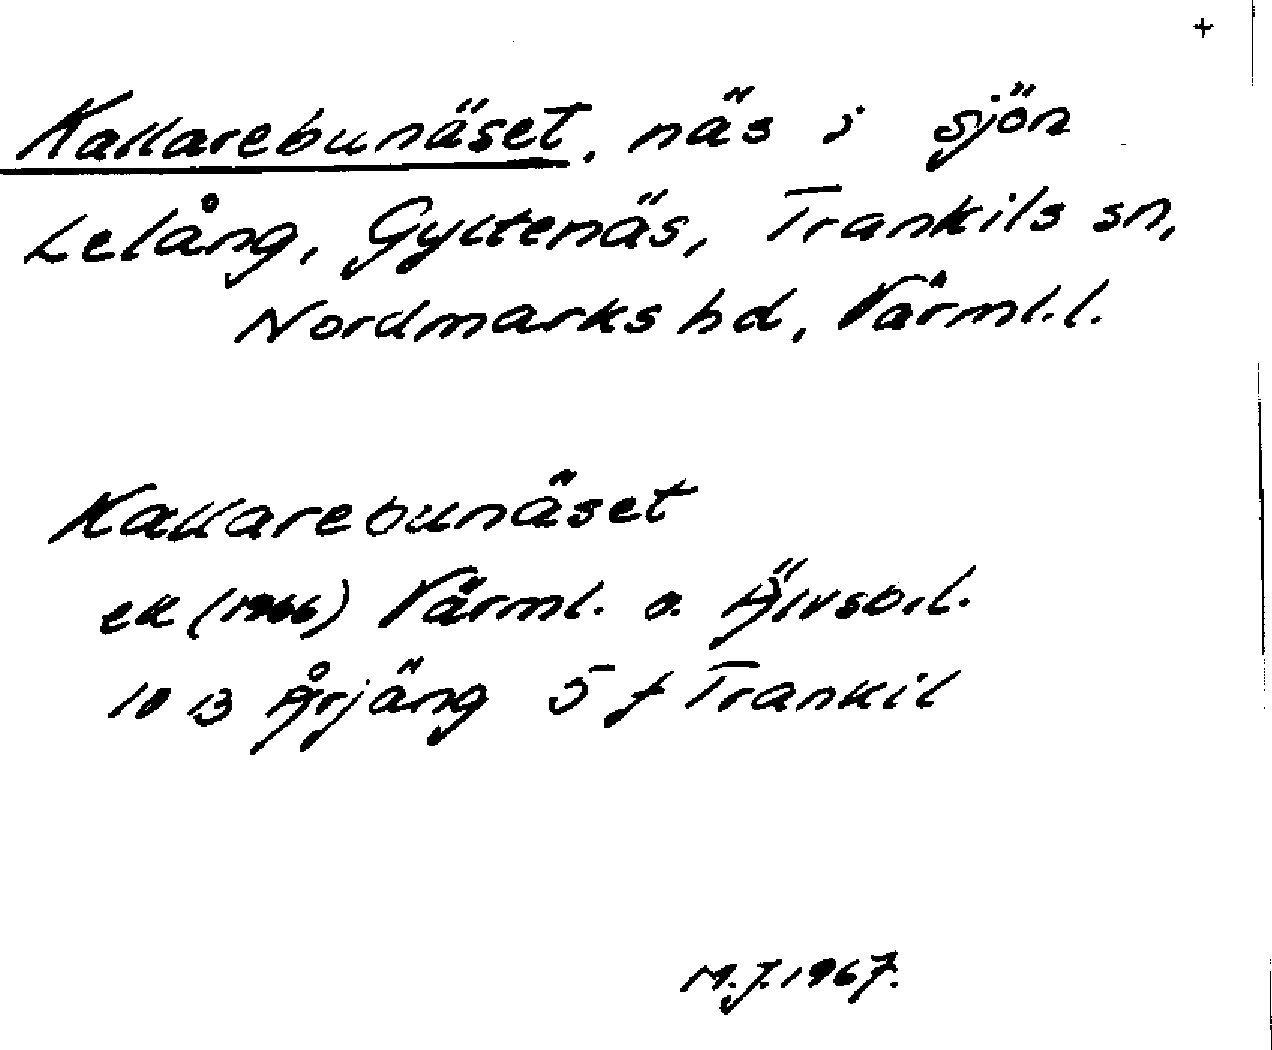 +
Kallarebunäset, näs i sjön
Lelång, Gyltenäs, Trankils sn,
Nordmarks hd, Värml. l.
Kallarebunäset
ek (1966) Värml. o. Älvsb. l.
10 B Årjäng 5 f Trankil
M.J. 1967.